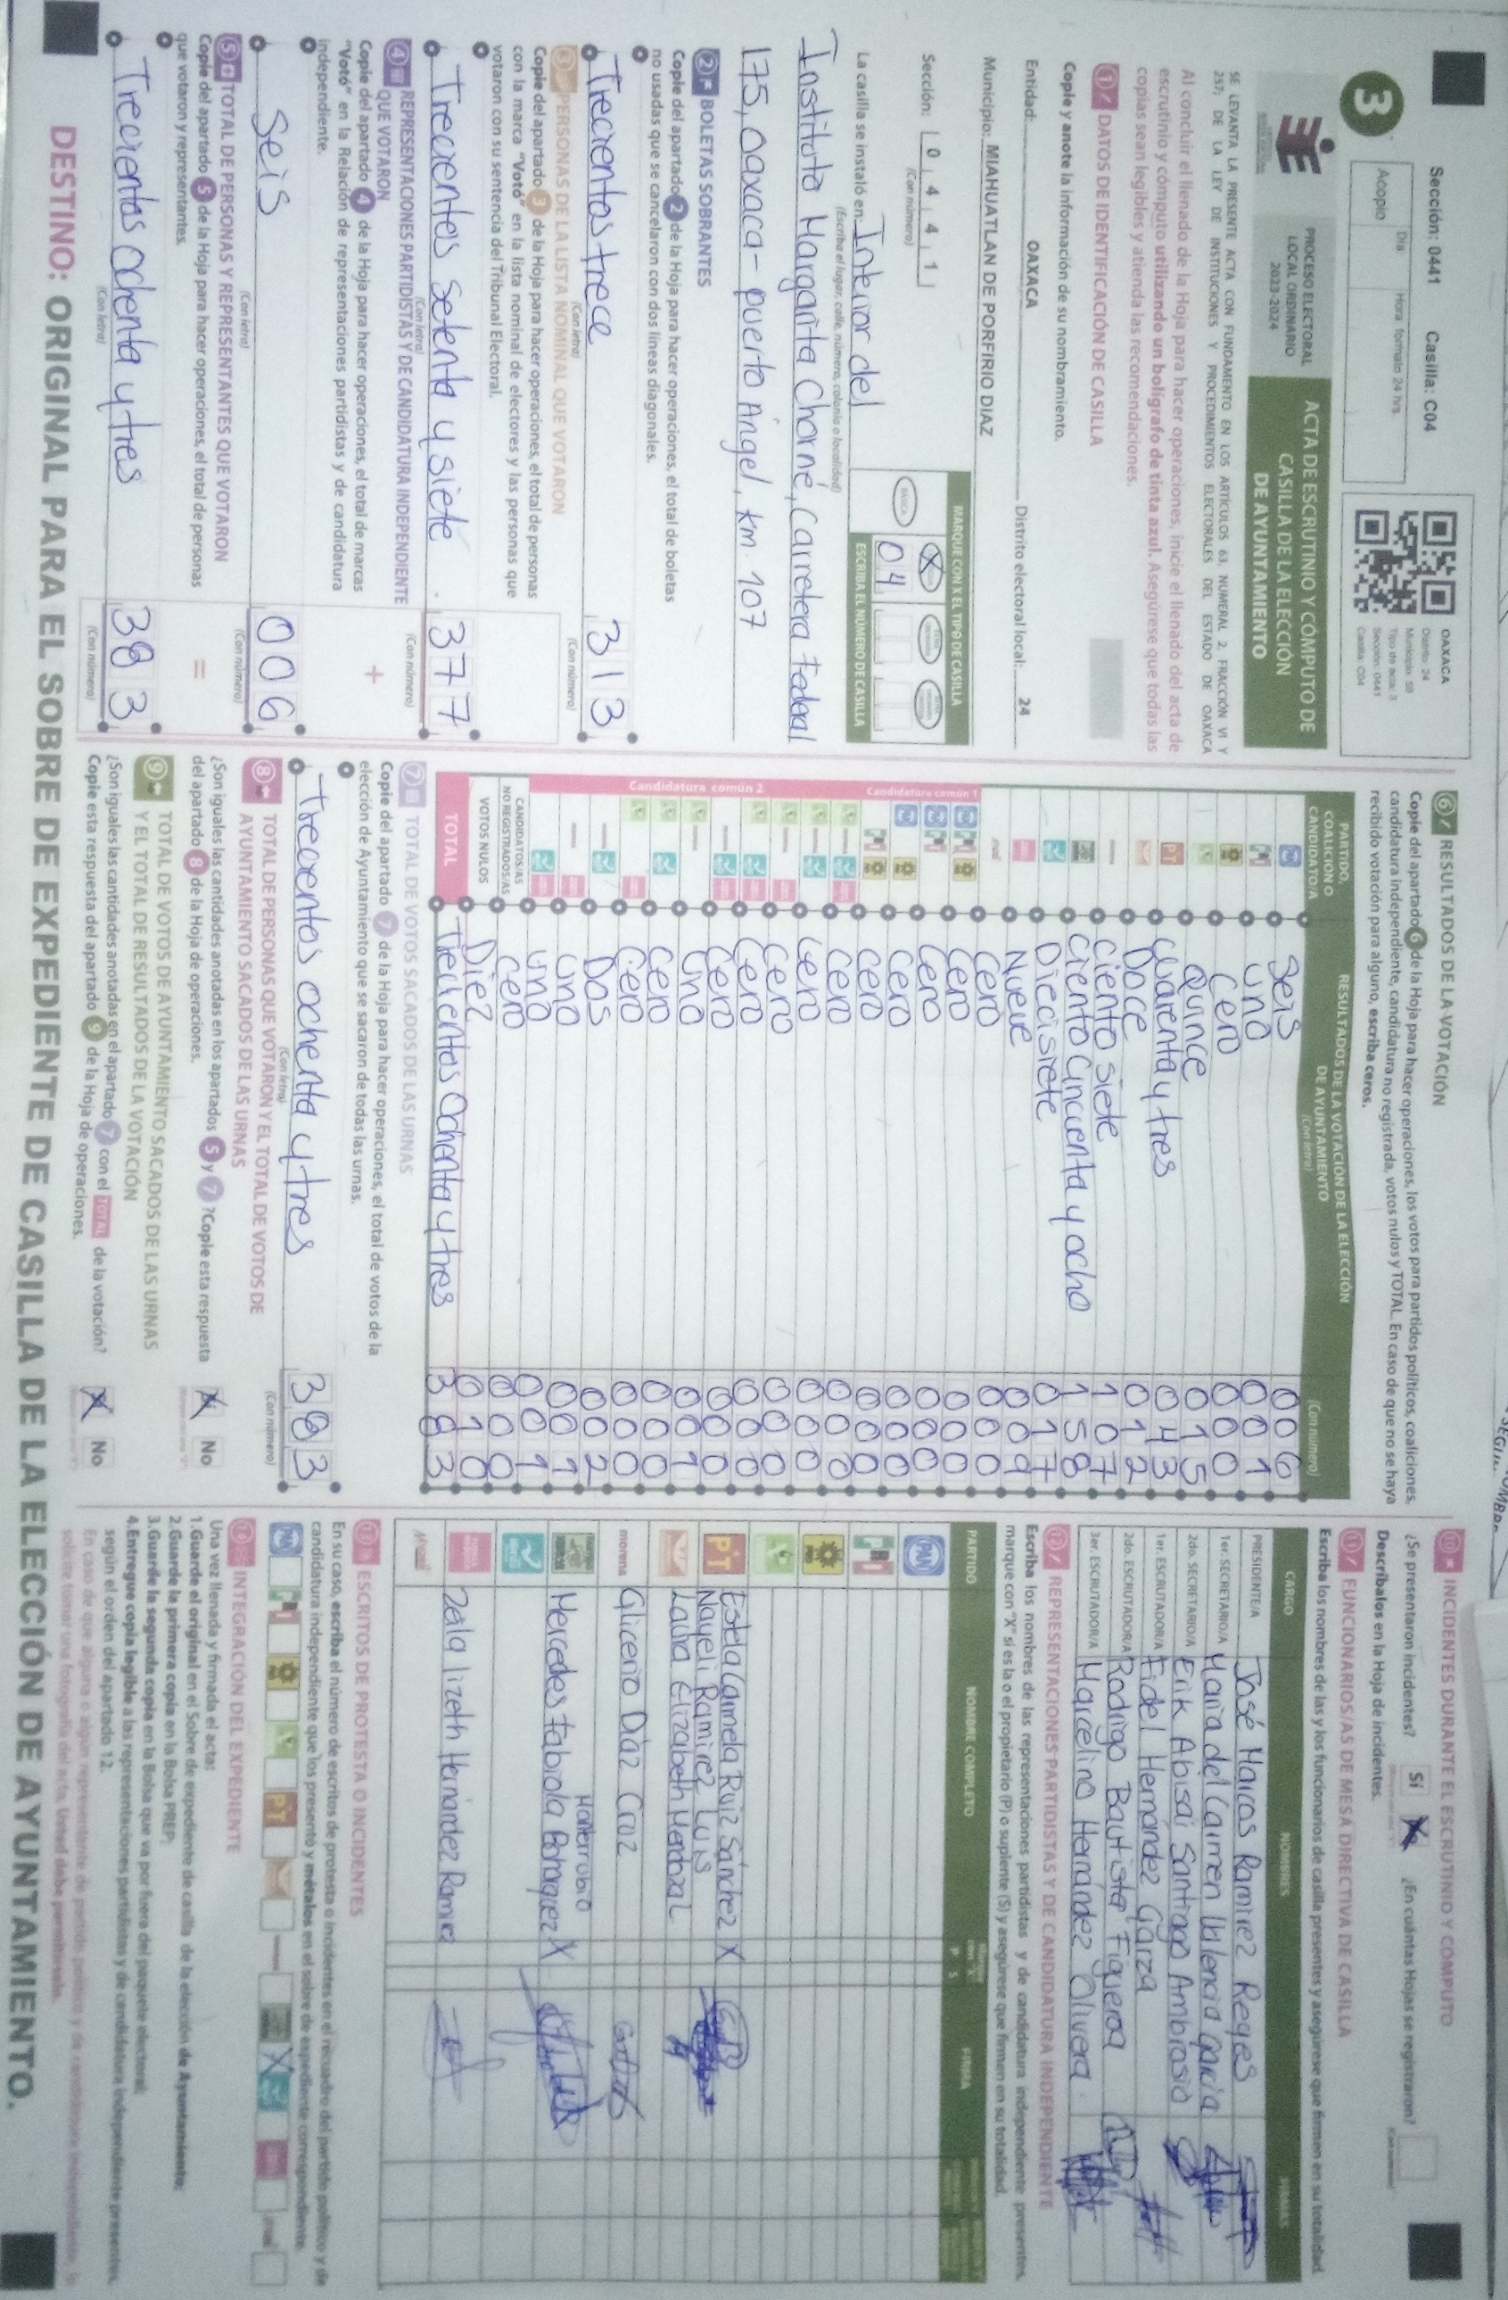 Sección: 0441 Casilla: C04
Día Hora formato 24 hrs.
Acopio
OAXACA
Distrito: 24
Municipio: 59
Tipo de acta: 3
Sección: 0441
Casilla: C04
3
PROCESO ELECTORAL
LOCAL ORDINARIO
2023-2024
ACTA DE ESCRUTINIO Y CÓMPUTO DE
CASILLA DE LA ELECCIÓN
DE AYUNTAMIENTO
SE LEVANTA LA PRESENTE ACTA CON FUNDAMENTO EN LOS ARTÍCULOS 63, NUMERAL 2, FRACCIÓN VI Y
257; DE LA LEY DE INSTITUCIONES Y PROCEDIMIENTOS ELECTORALES DEL ESTADO DE OAXACA
Al concluir el llenado de la Hoja para hacer operaciones, inicie el llenado del acta de
escrutinio y cómputo utilizando un bolígrafo de tinta azul. Asegúrese que todas las
copias sean legibles y atienda las recomendaciones.
1 DATOS DE IDENTIFICACIÓN DE CASILLA
Copie y anote la información de su nombramiento.
Entidad: OAXACA Distrito electoral local: 24
Municipio: MIAHUATLAN DE PORFIRIO DIAZ
Sección: 0 4 4 1
(Con número)
MARQUE CON X EL TIPO DE CASILLA
BÁSICA X
04
ESCRIBA EL NÚMERO DE CASILLA
La casilla se instaló en: Interior del
(Escriba el lugar, calle, número, colonia o localidad)
Instituto Margarita Chorné, Carretera Federal
175, Oaxaca - puerto Ángel, km. 107
2 BOLETAS SOBRANTES
Copie del apartado 2 de la Hoja para hacer operaciones, el total de boletas
no usadas que se cancelaron con dos líneas diagonales.
Trecientos trece 313
(Con letra) (Con número)
3 PERSONAS DE LA LISTA NOMINAL QUE VOTARON
Copie del apartado 3 de la Hoja para hacer operaciones, el total de personas
con la marca "Votó" en la lista nominal de electores y las personas que
votaron con su sentencia del Tribunal Electoral.
Trecientos setenta y siete 377
(Con letra) (Con número)
4 REPRESENTACIONES PARTIDISTAS Y DE CANDIDATURA INDEPENDIENTE
QUE VOTARON
Copie del apartado 4 de la Hoja para hacer operaciones, el total de marcas
"Votó" en la Relación de representaciones partidistas y de candidatura
independiente.
+
Seis 006
(Con letra) (Con número)
5 TOTAL DE PERSONAS Y REPRESENTANTES QUE VOTARON
Copie del apartado 5 de la Hoja para hacer operaciones, el total de personas
que votaron y representantes.
=
Trecientos ochenta y tres 383
(Con letra) (Con número)
6 RESULTADOS DE LA VOTACIÓN
Copie del apartado 6 de la Hoja para hacer operaciones, los votos para partidos políticos, coaliciones,
candidatura independiente, candidatura no registrada, votos nulos y TOTAL. En caso de que no se haya
recibido votación para alguno, escriba ceros.
PARTIDO,
COALICIÓN O
CANDIDATO/A
RESULTADOS DE LA VOTACIÓN DE LA ELECCIÓN
DE AYUNTAMIENTO
(Con letra) (Con número)
Seis 006
Uno 001
Cero 000
Quince 015
PT Cuarenta y tres 043
Doce 012
Ciento siete 107
Ciento Cincuenta y ocho 158
Diecisiete 017
Nueve 009
Cero 000
Candidatura común 1
Cero 000
Cero 000
Cero 000
Cero 000
Candidatura común 2
Cero 000
Cero 000
Cero 000
Cero 000
Cero 000
Uno 001
Cero 000
Cero 000
Dos 002
Uno 001
Uno 001
CANDIDATOS/AS
NO REGISTRADOS/AS Cero 000
VOTOS NULOS Diez 010
TOTAL Trescientos Ochenta y tres 383
7 TOTAL DE VOTOS SACADOS DE LAS URNAS
Copie del apartado 7 de la Hoja para hacer operaciones, el total de votos de la
elección de Ayuntamiento que se sacaron de todas las urnas.
Trecientos ochenta y tres 383
(Con letra) (Con número)
8 TOTAL DE PERSONAS QUE VOTARON Y EL TOTAL DE VOTOS DE
AYUNTAMIENTO SACADOS DE LAS URNAS
¿Son iguales las cantidades anotadas en los apartados 5 y 7 ?Copie esta respuesta
del apartado 8 de la Hoja de operaciones.
X No
9 TOTAL DE VOTOS DE AYUNTAMIENTO SACADOS DE LAS URNAS
Y EL TOTAL DE RESULTADOS DE LA VOTACIÓN
¿Son iguales las cantidades anotadas en el apartado 7 con el TOTAL de la votación?
Copie esta respuesta del apartado 9 de la Hoja de operaciones.
X No
10 INCIDENTES DURANTE EL ESCRUTINIO Y CÓMPUTO
¿Se presentaron incidentes? Sí X ¿En cuántas Hojas se registraron?
Descríbalos en la Hoja de incidentes.
11 FUNCIONARIOS/AS DE MESA DIRECTIVA DE CASILLA
Escriba los nombres de las y los funcionarios de casilla presentes y asegúrese que firmen en su totalidad.
CARGO NOMBRES FIRMAS
PRESIDENTE/A José Marcos Ramirez Reyes
1er. SECRETARIO/A Maria del Carmen Valencia García
2do. SECRETARIO/A Erik Abisai Santiago Ambrosio
1er. ESCRUTADOR/A Fidel Hernández Garza
2do. ESCRUTADOR/A Rodrigo Bautista Figueroa
3er. ESCRUTADOR/A Marcelino Hernández Olivera
12 REPRESENTACIONES PARTIDISTAS Y DE CANDIDATURA INDEPENDIENTE
Escriba los nombres de las representaciones partidistas y de candidatura independiente presentes,
marque con "X" si es la o el propietario (P) o suplente (S) y asegúrese que firmen en su totalidad.
PARTIDO NOMBRE COMPLETO P S FIRMA
PAN
PRI
PT Estela Carmela Ruiz Sánchez X
Nayeli Ramirez Luis
Laura Elizabeth Mendoza
morena Glicerio Díaz Cruz
Monterrubio
Mercedes Fabiola Bohorquez X
Zeila lizeth Hernández Ramirez
13 ESCRITOS DE PROTESTA O INCIDENTES
En su caso, escriba el número de escritos de protesta o incidentes en el recuadro del partido político y de
candidatura independiente que los presentó y métalos en el sobre de expediente correspondiente.
PAN PT X
INTEGRACIÓN DEL EXPEDIENTE
Una vez llenada y firmada el acta:
1.Guarde el original en el Sobre de expediente de casilla de la elección de Ayuntamiento;
2.Guarde la primera copia en la Bolsa PREP;
3.Guarde la segunda copia en la Bolsa que va por fuera del paquete electoral;
4.Entregue copia legible a las representaciones partidistas y de candidatura independiente presentes,
según el orden del apartado 12.
En caso de que alguna o algún representante de partido político y de candidatura independiente, le
solicite tomar una fotografía del acta, Usted debe permitírselo.
DESTINO: ORIGINAL PARA EL SOBRE DE EXPEDIENTE DE CASILLA DE LA ELECCIÓN DE AYUNTAMIENTO.